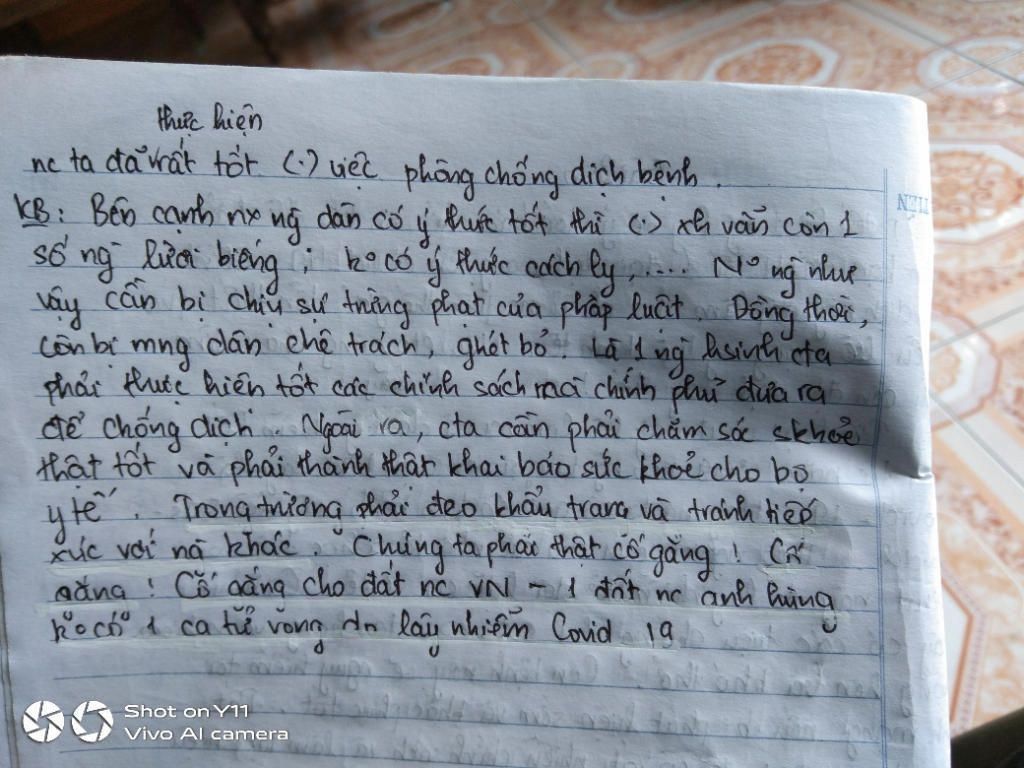 thực hiện
nc ta đã rất tốt (.) việc phòng chống dịch bệnh.
KB: Bên cạnh nx ng dân có ý thức tốt thì (.) xh vẫn còn 1
số ng lười biếng, kº có ý thức cách ly, .... Nº ng như
vậy cần bị chịu sự trừng phạt của pháp luật. Đồng thời,
còn bị mng dân chê trách, ghét bỏ. Là 1 ng hsinh cta
phải thực hiện tốt các chính sách mà chính phủ đưa ra
để chống dịch. Ngoài ra, cta cần phải chăm sóc skhoẻ
thật tốt và phải thành thật khai báo sức khoẻ cho bộ
y tế. Trong trường phải đeo khẩu trang và tránh tiếp
xúc với ng khác. Chúng ta phải thật cố gắng! Cố
gắng! Cố gắng cho đất nc VN - 1 đất nc anh hùng
kº có 1 ca tử vong do lây nhiễm Covid 19
TIÊN
Shot on Y11
Vivo AI camera